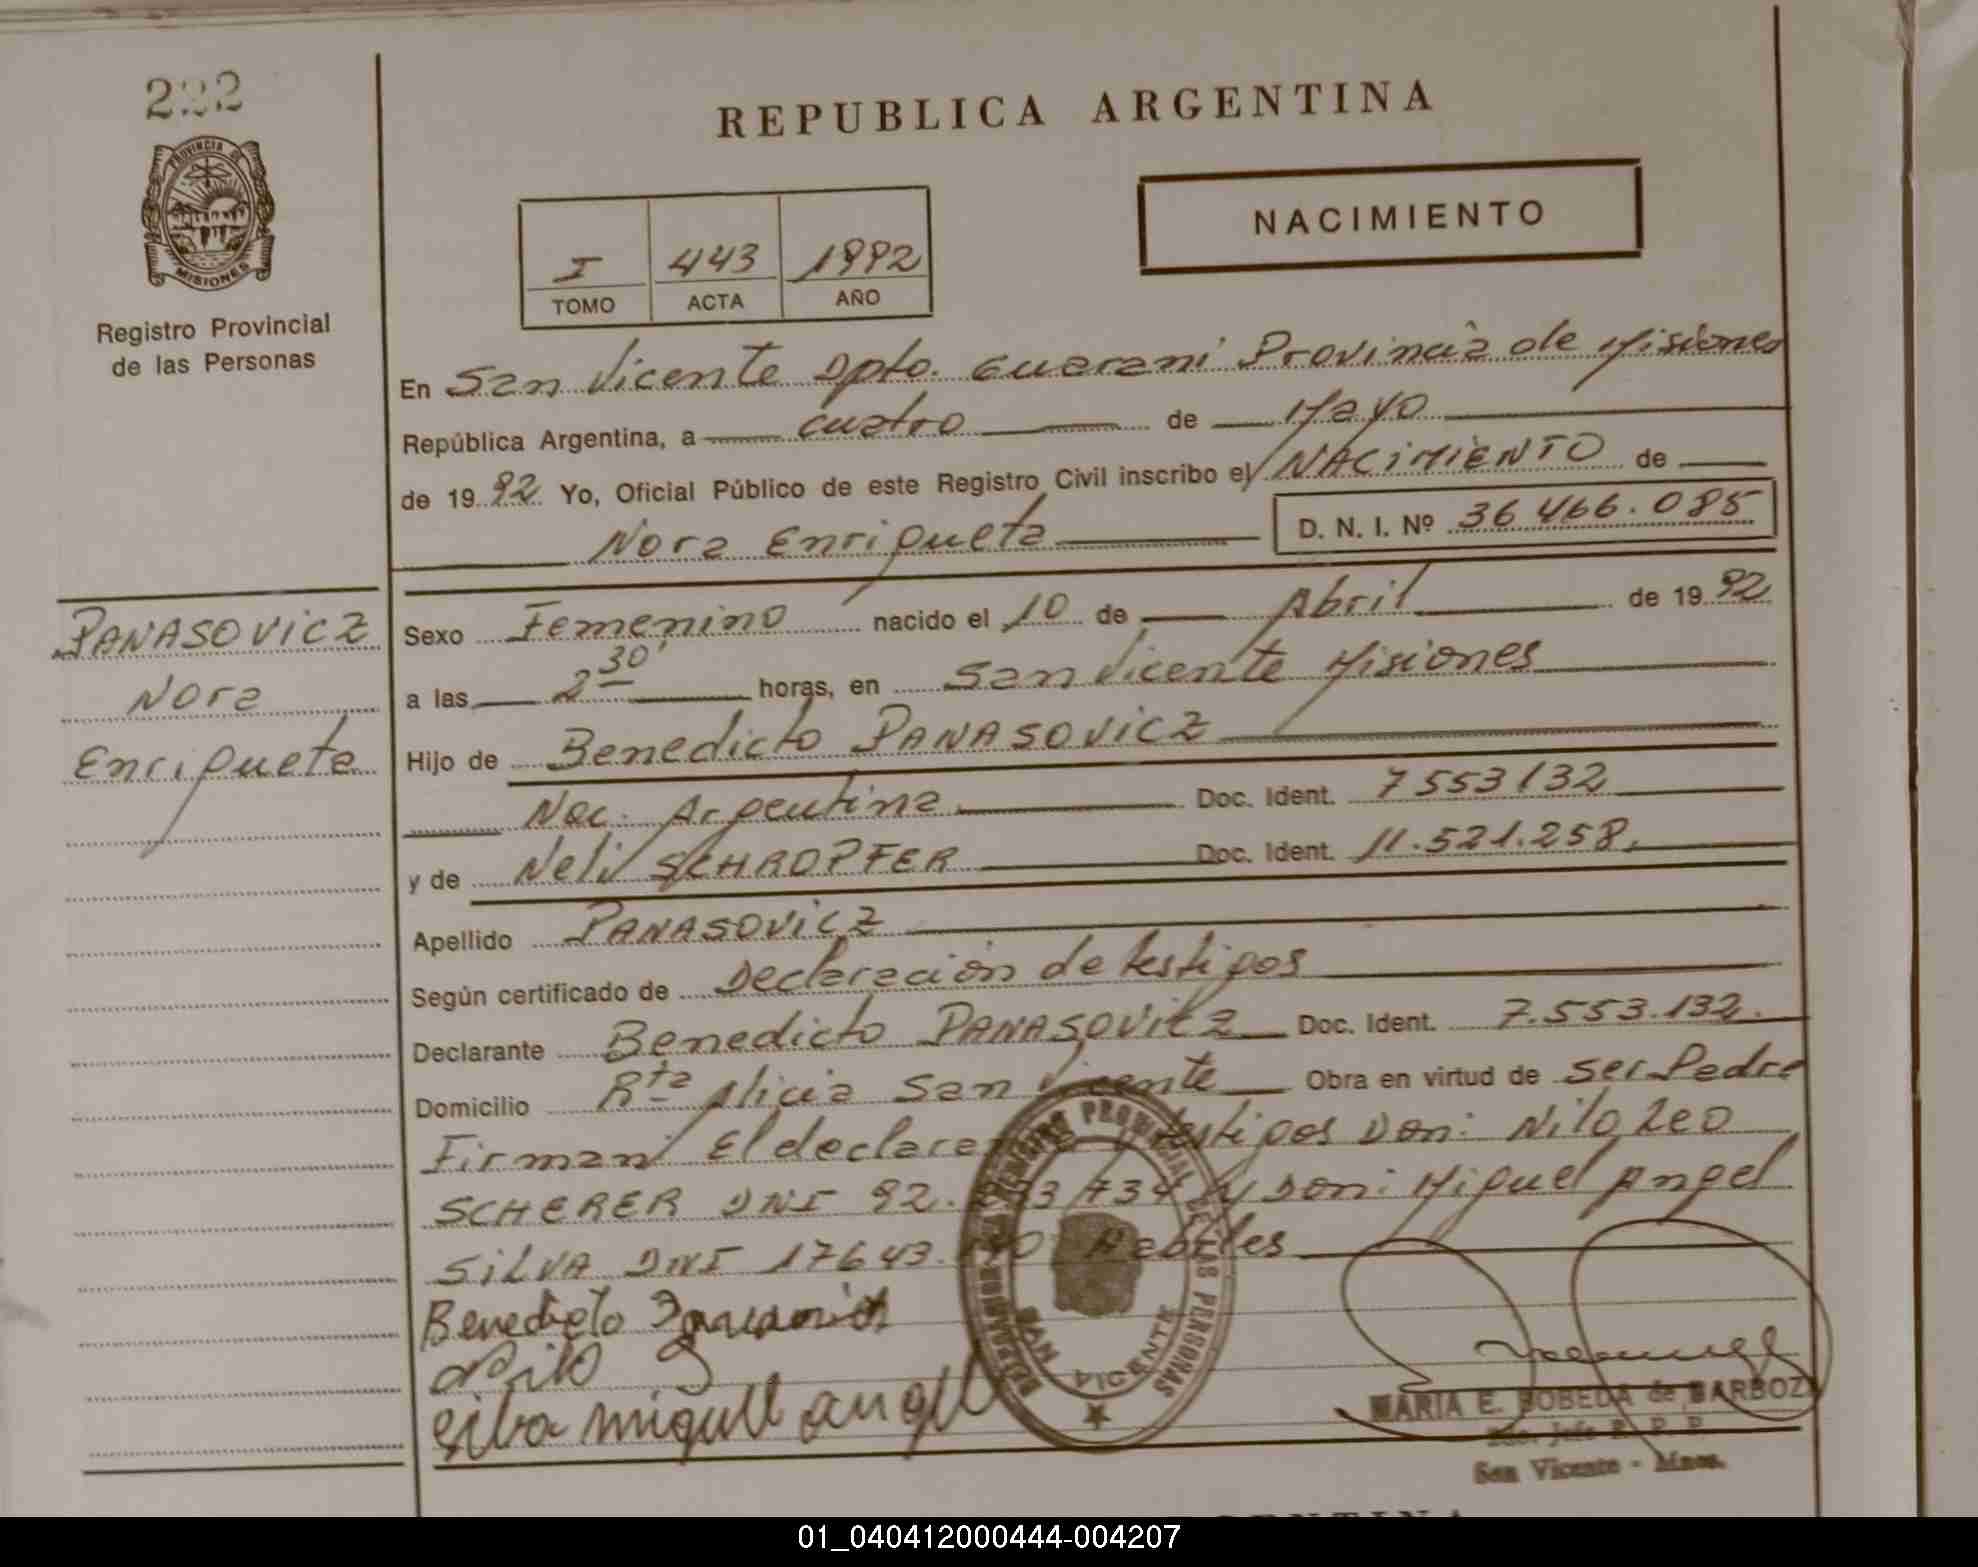 222
PROVINCIA DE
MISIONES
Registro Provincial
de las Personas
REPUBLICA ARGENTINA
NACIMIENTO
I 443 1992
TOMO ACTA AÑO
En San Vicente Dpto. Guaraní Provincia de Misiones
República Argentina, a cuatro de Mayo
de 1992 Yo, Oficial Público de este Registro Civil inscribo el NACIMIENTO de
Nora Enriqueta D. N. I. Nº 36 466.085
PANASOVICZ
Nora
Enriqueta
Sexo Femenino nacido el 10 de Abril de 1992
a las 2 30' horas, en San Vicente Misiones
Hijo de Benedicto PANASOVICZ
Nac. Argentina Doc. Ident. 7553132
y de Neli SCHROPFER Doc. Ident. 11.521.258.
Apellido PANASOVICZ
Según certificado de Declaración de testigos
Declarante Benedicto PANASOVICZ Doc. Ident. 7.553.132.
Domicilio Rta Alicia San Vicente Obra en virtud de ser Padre
Firman El testigos Don: Nilo Leo
SCHERER DNI 92. 734 y Don: Miguel Angel
SILVA DNI 17643.
Benedicto
Nilo
Silva miguel angel
REGISTRO PROVINCIAL DE LAS PERSONAS
SAN VICENTE
MARIA E. BOBEDA de BARBOZA
San Vicente - Mnes.
01_040412000444-004207